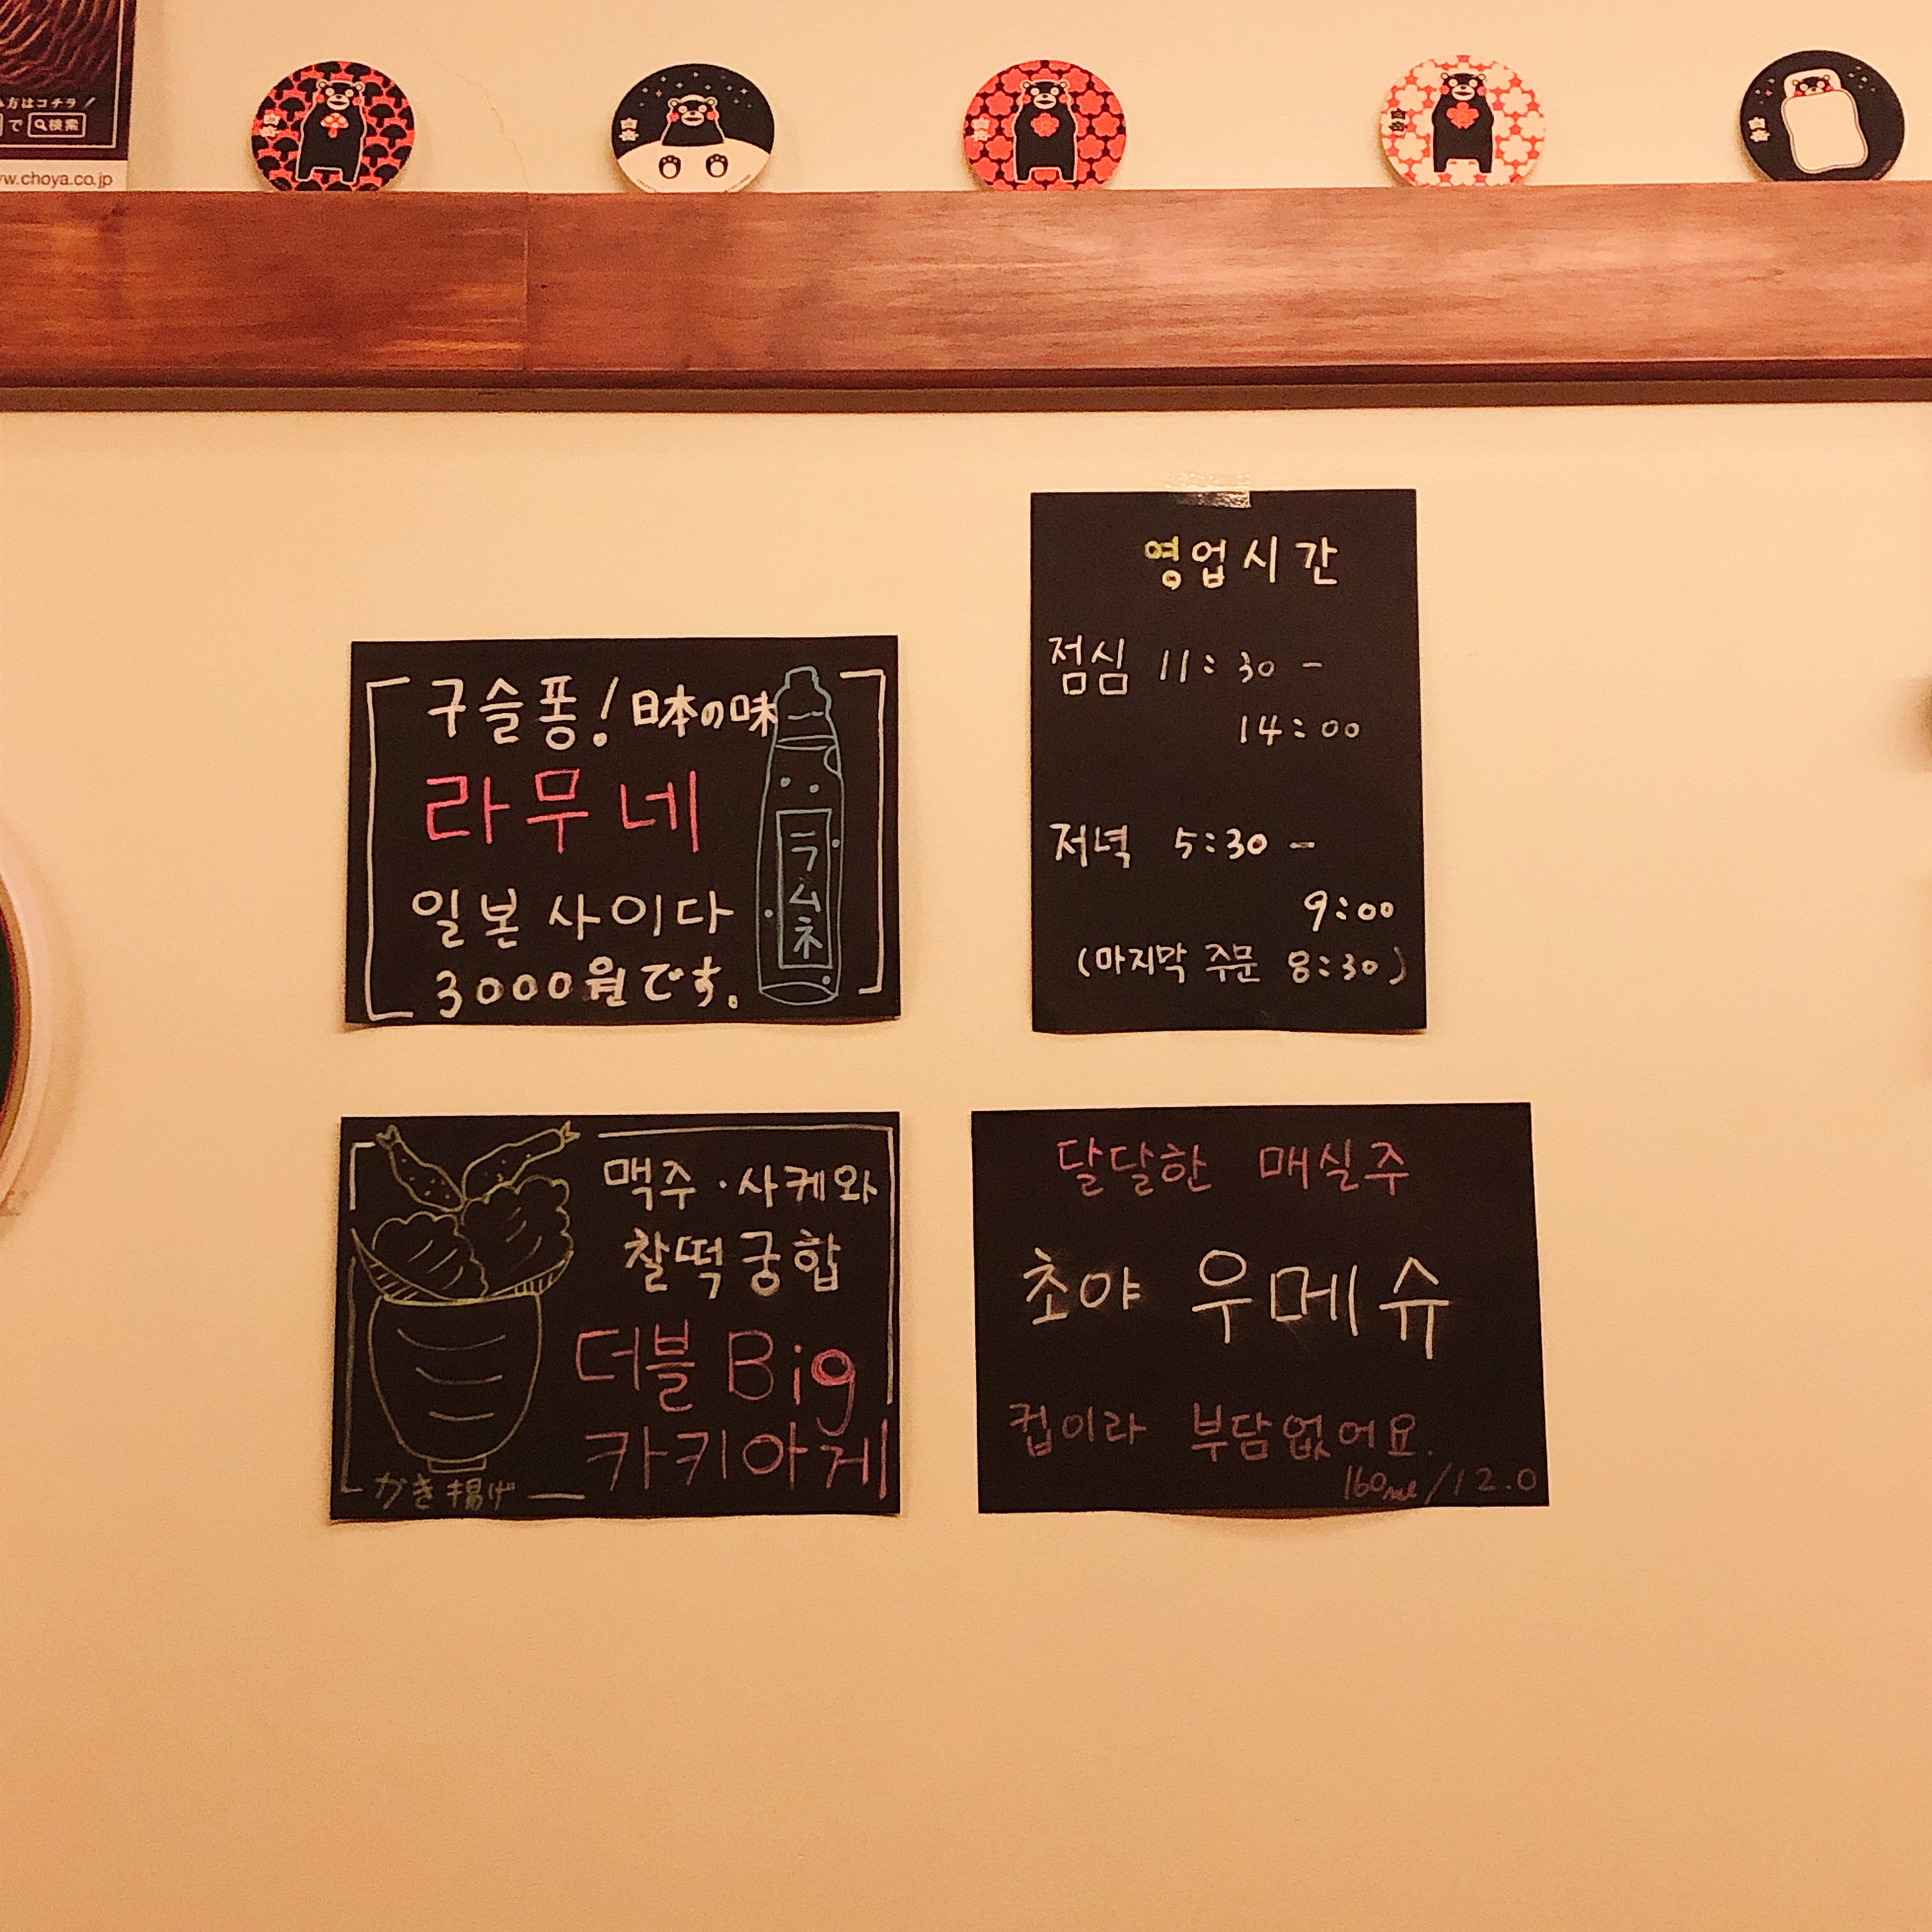 方はコチラ
で 検索
w.choya.co.jp
白岳
白岳
白岳
白岳
白岳
영업시간
점심 11:30 -
14:00
저녁 5:30 -
9:00
(마지막 주문 8:30)
구슬퐁! 日本の味
라무네
일본 사이다
3000원です.
ラムネ
맥주·사케와
찰떡궁합
더블 Big
카키아게
かき揚げ
달달한 매실주
초야 우메슈
컵이라 부담없어요.
160ml/12.0